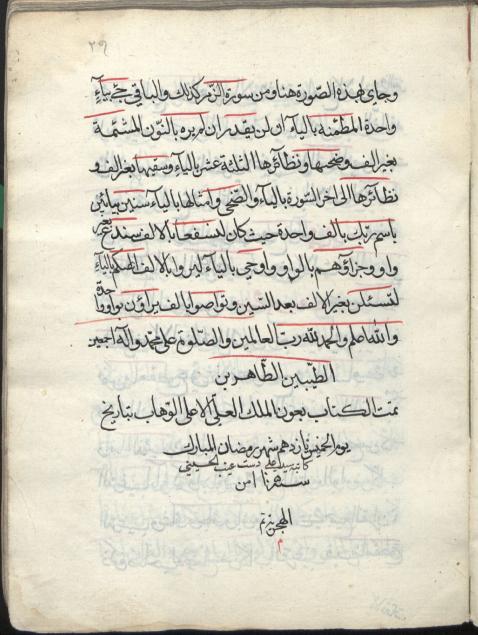 ٢٩
وجاى بهذه الصورة هنا ومن سورة الزمر كذلك والباقي جئ بياء
واحدة المطمئنة بالياء ان لن يقدر ان لم يره بالنون المشئمة
بغير الف وضحيها ونظائرها الثلثة عشر بالياء وسقيها بغير الف و
نظائرها الى اخر السورة بالياء والضحى وامثالها بالياء سنين بيائين
باسم ربك بالف واحدة حيث كان لنسفعا بالالف سندع بغير
واو وجزاؤهم بالواو واوحى بالياء بالالف الهيكم بالياء
لتسئلن بغير الالف بعد السين وتواصوا بالف يراؤن بواو واحدة
والله اعلم والحمد لله رب العالمين والصلوة على محمد وآله اجمعين
الطيبين الطاهرين
تمت الكتاب بعون الملك العلى الاعلى الوهاب بتاريخ
يوم الخميس يازدهم شهر رمضان المبارك
سنه من
الهجريه تم
م